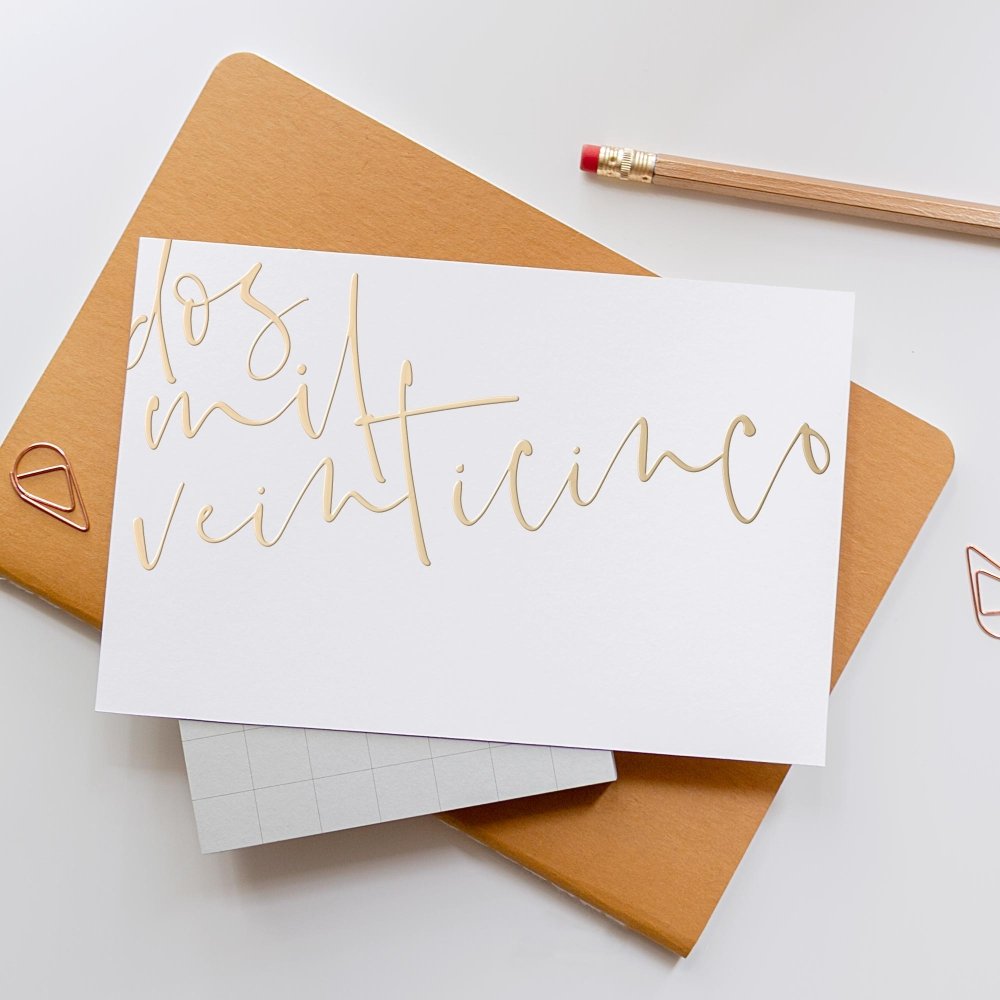 dos
mil
veinticinco